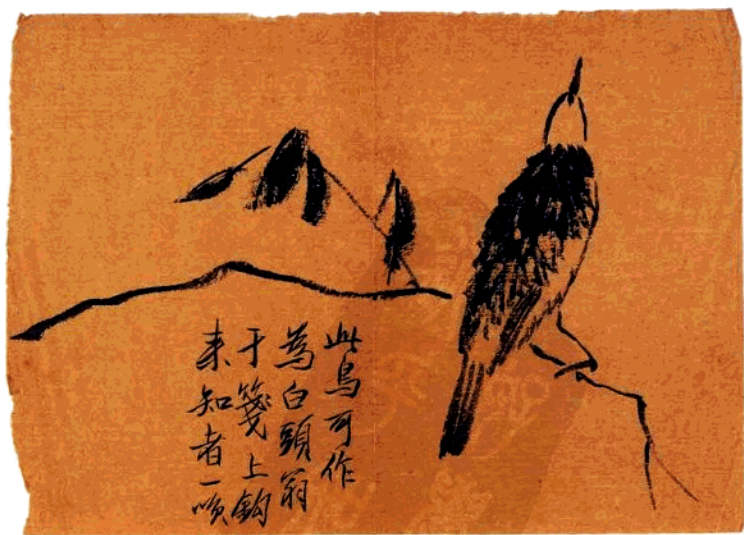 此鳥可作
為白頭翁
于箋上鈎
来知者一